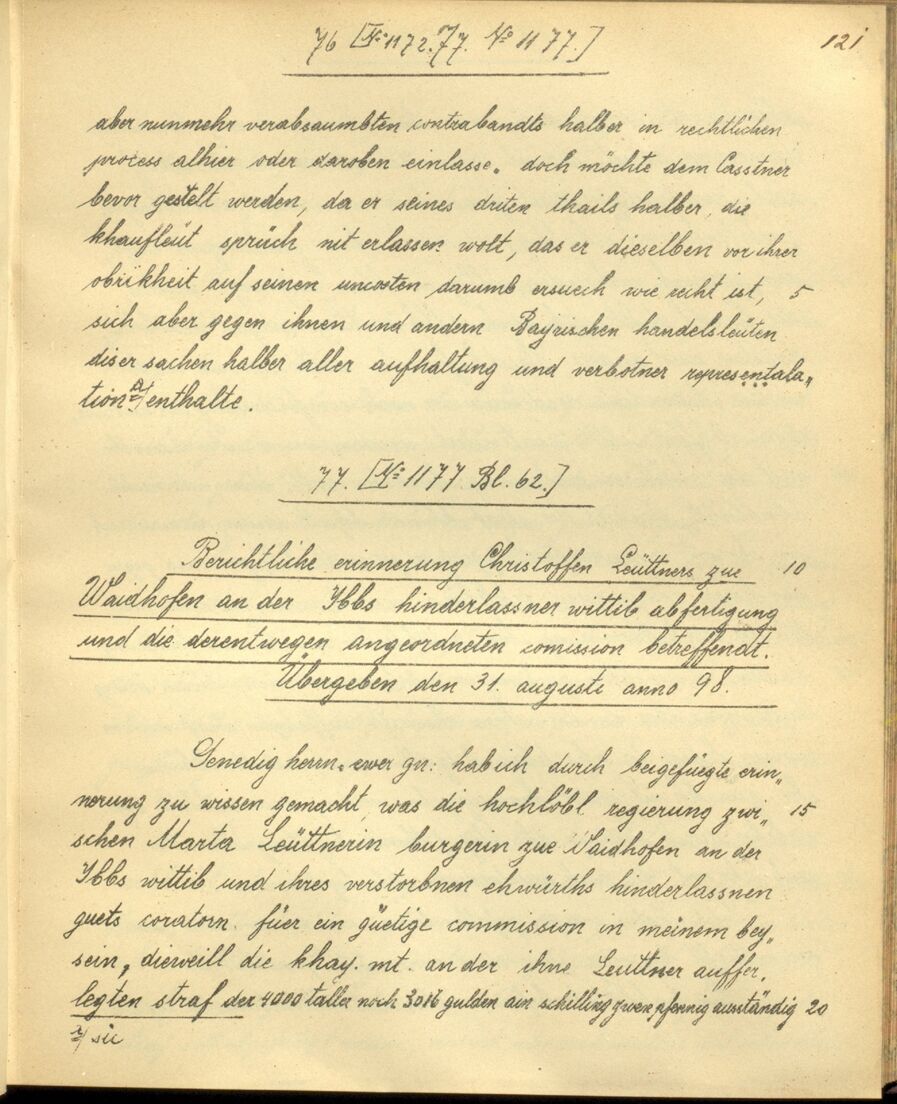 76 [No 1172. 77. No 1177.] 121
aber nunmehr verabsaumbten contrabandts halber in rechtlichen
process alhier oder daroben einlasse. doch möchte dem Casstner
bevor gestelt werden, da er seines driten thails halber, die
khaufleüt sprüch nit erlassen wolt, das er dieselben vor ihrer
obrikheit auf seinen uncosten darumb ersuech wie recht ist, 5
sich aber gegen ihnen und andern Bayrischen handelsleüten
diser sachen halber aller aufhaltung und verbotner representala„
tion a) enthalte.
77. [No 1177 Bl. 62.]
Berichtliche erinnerung Christoffen Leüttners zue 10
Waidhofen an der Ybbs hinderlassner wittib abfertigung
und die derentwegen angeordneten comission betreffendt.
Übergeben den 31. auguste anno 98.
Genedig herrn. ewer gn: hab ich durch beigefüegte erin„
nerung zu wissen gemacht, was die hochlöbl regierung zwi„ 15
schen Marta Leüttnerin burgerin zue Waidhofen an der
Ybbs wittib und ihres verstorbnen ehwürths hinderlassnen
guets coratorn füer ein güetige commission in meinem bey„
sein, dieweill die khay. mt. an der ihne Leuttner auffer„
legten straf der 4000 taller noch 3016 gulden ain schilling zwen pfennig ausständig 20
a) sic